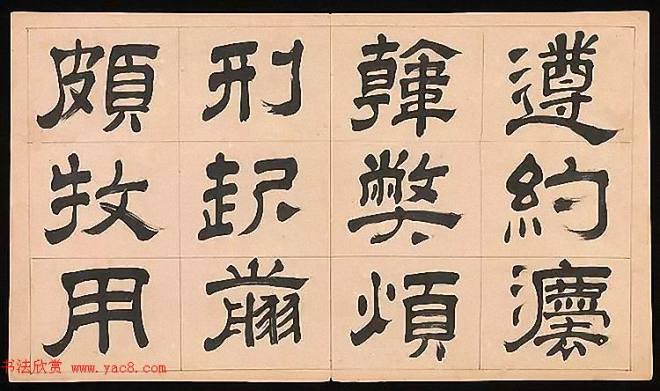 遵約灋
韓弊煩
刑起翦
頗牧用
书法欣赏 www.yac8.com